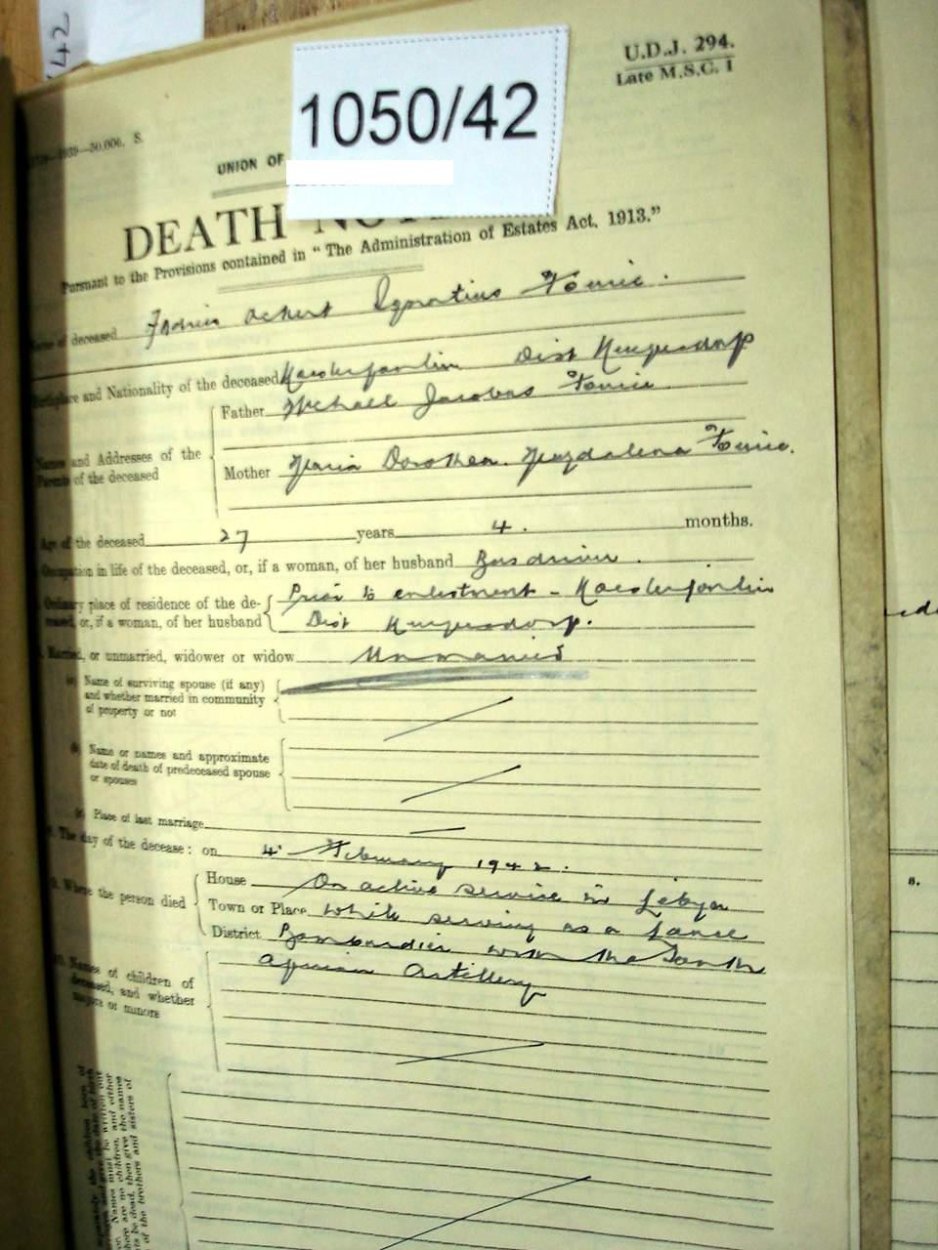 42
1050/42
U.D.J. 294.
Late M.S.C. 1
1939—50,000. S.
UNION OF
DEATH
Pursuant to the Provisions contained in "The Administration of Estates Act, 1913."
of deceased Ackert Ignatius Fourie.
and Nationality of the deceased Dist Krugersdorp
Names and Addresses of the Parents of the deceased
Father Michael Jacobus Fourie
Mother Maria Dorothea Magdalena Fourie.
Age of the deceased 27 years 4. months.
Occupation in life of the deceased, or, if a woman, of her husband Bus driver.
Ordinary place of residence of the deceased, or, if a woman, of her husband
Prior to enlistment -
Dist Krugersdorp.
Married, or unmarried, widower or widow Unmarried
Name of surviving spouse (if any) and whether married in community of property or not
Name or names and approximate date of death of predeceased spouse or spouses
Place of last marriage
The day of the decease: on 4 February 1942.
Where the person died
House On active service in Libya
Town or Place while serving as a Lance
District Bombardier with the South
African Artillery
Names of children of deceased, and whether majors or minors
8.